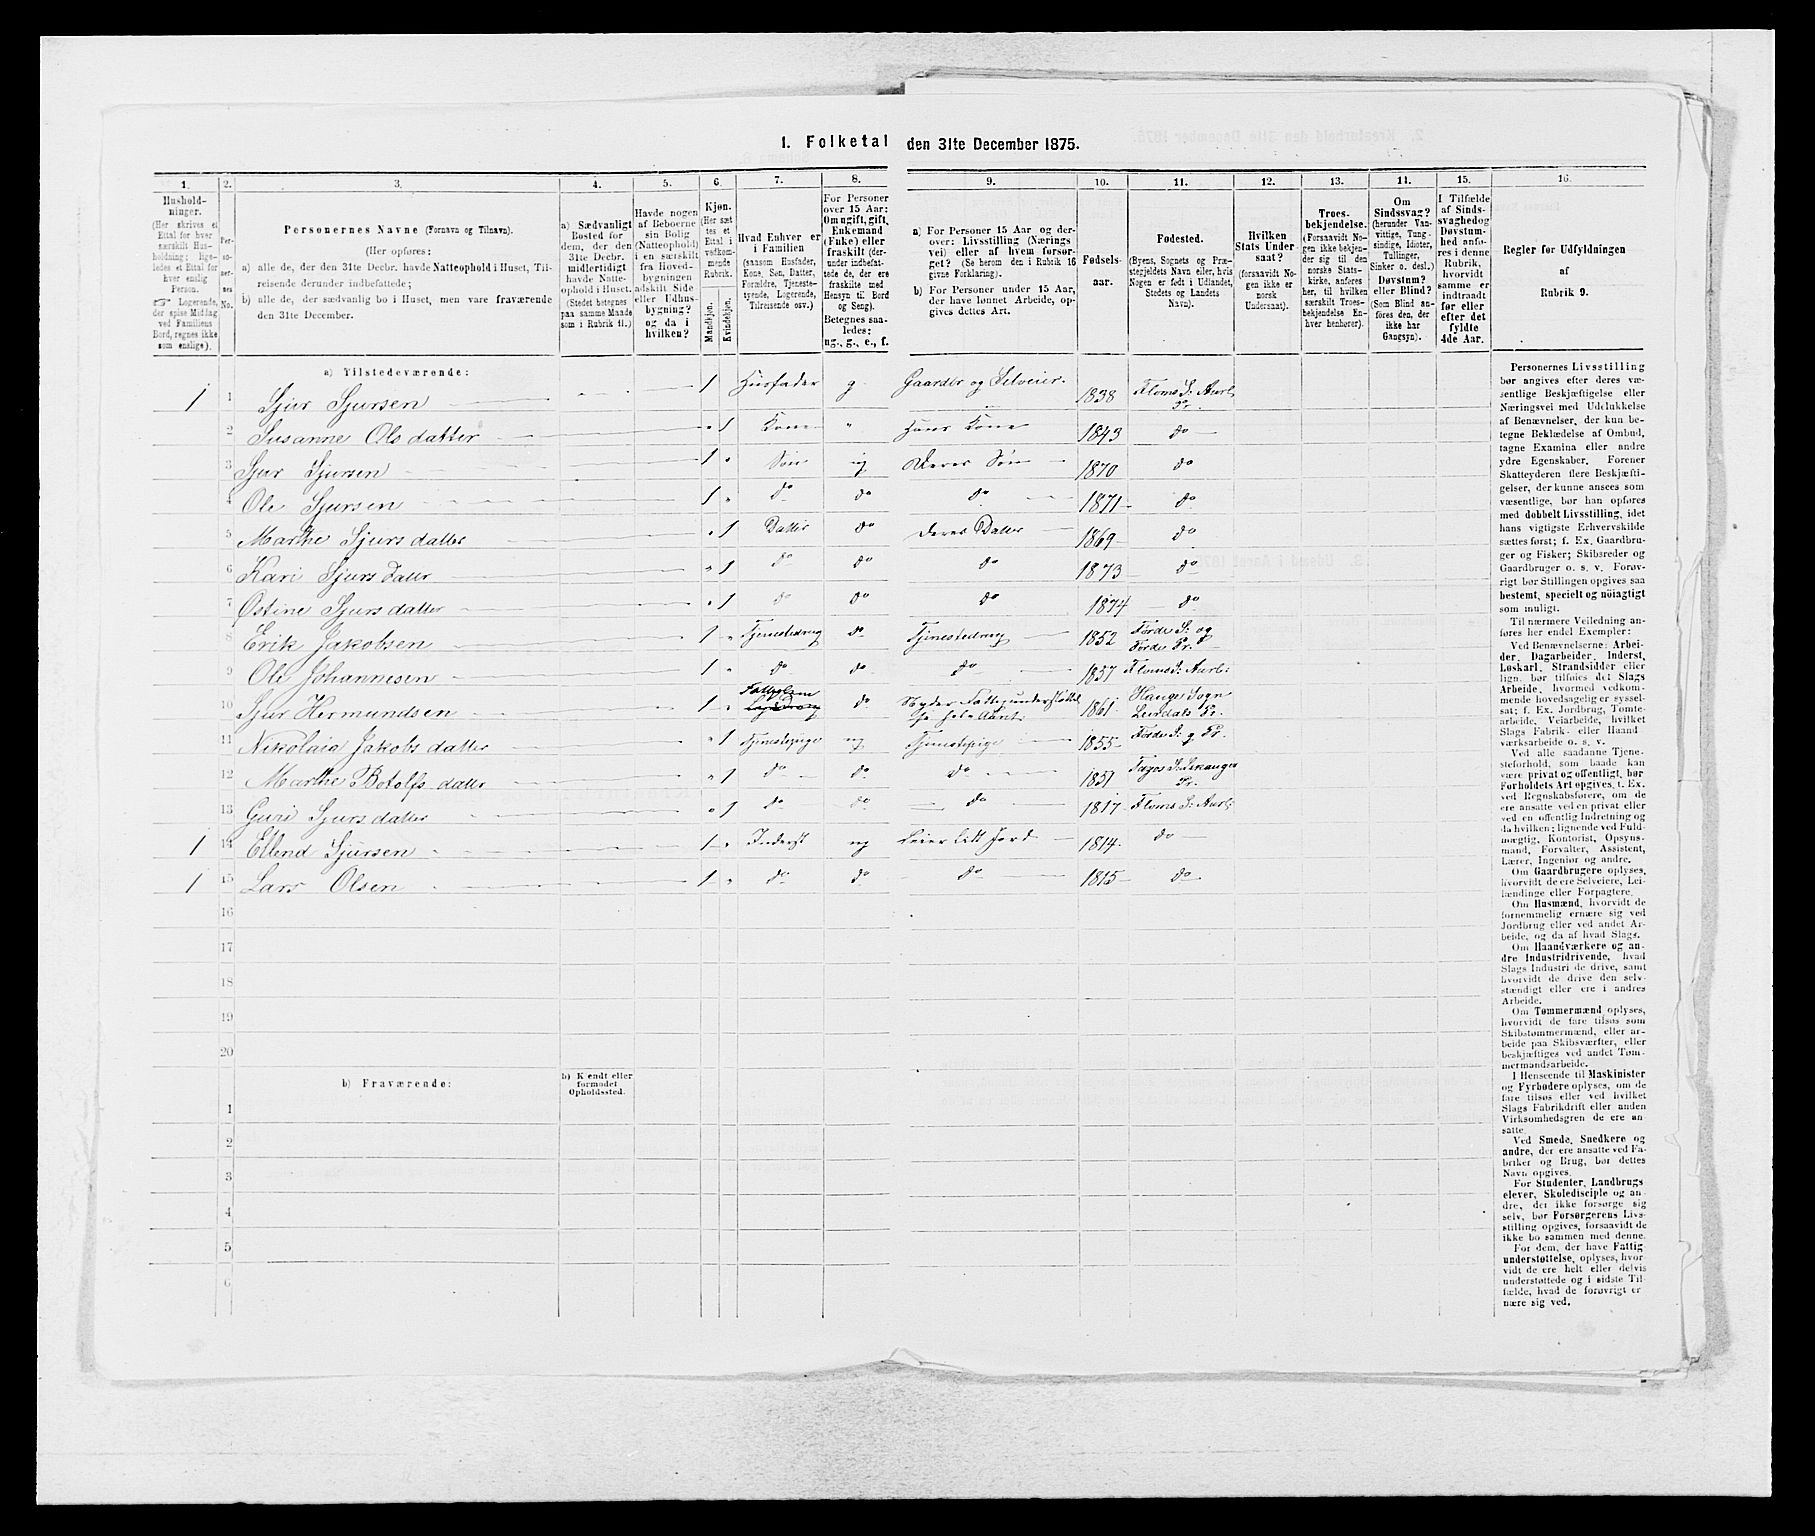 1. Folketal den 31te December 1875.
1. 2. 3. 4. 5. 6. 7. 8. 9. 10. 11. 12. 13. 14. 15. 16.
Hushold-
ninger.
(Her skrives et
Ettal for hver
særskilt Hus-
holdning; lige-
ledes et Ettal for
hver enslig
Person.
☞ Logerende,
der spise Middag
ved Familiens
Bord, regnes ikke
som enslige).
Per-
so-
ner-
nes
No.
Personernes Navne (Fornavn og Tilnavn).
(Her opføres:
a) alle de, der den 31te Decbr. havde Natteophold i Huset, Til-
reisende derunder indbefattede;
b) alle de, der sædvanlig bo i Huset, men vare fraværende
den 31te December.
a) Sædvanligt
Bosted for
dem, der den
31te Decbr.
midlertidigt
havde Natte-
ophold i Huset.
(Stedet betegnes
paa samme Maade
som i Rubrik 11.)
Havde nogen
af Beboerne
sin Bolig
(Natteophold)
i en særskilt
fra Hoved-
bygningen
adskilt Side
eller Udhus-
bygning?
og da i
hvilken?
Kjøn.
(Her sæt-
tes et
Ettal i
vedkom-
mende
Rubrik.
Mandkjøn.
Kvindekjøn.
Hvad Enhver er
i Familien
(saasom Husfader,
Kone, Søn, Datter,
Forældre, Tjeneste-
tyende, Logerende,
Tilreisende osv.)
For Personer
over 15 Aar:
Om ugift, gift,
Enkemand
(Enke) eller
fraskilt (der-
under indbefat-
tede de, der ere
fraskilte med
Hensyn til Bord
og Seng).
Betegnes saa-
ledes:
ug., g., e., f.
a) For Personer 15 Aar og der-
over: Livsstilling (Nærings
vei) eller af hvem forsør-
get? (Se herom den i Rubrik 16
givne Forklaring).
b) For Personer under 15 Aar,
der have lønnet Arbeide, op-
gives dettes Art.
Fødsels-
aar.
Fødested.
(Byens, Sognets og Præ-
stegjeldets Navn eller, hvis
Nogen er født i Udlandet,
Stedets og Landets
Navn).
Hvilken
Stats Under
saat?
(forsaavidt No-
gen ikke er
norsk
Undersaat).
Troes-
bekjendelse.
(Forsaavidt No-
gen ikke bekjen-
der sig til den
norske Stats-
kirke, anføres
her, til hvilken
særskilt Troes-
bekjendelse En-
hver henhører).
Om
Sindssvag?
(herunder Van-
vittige, Tung-
sindige, Idioter,
Tullinger,
Sinker o. desl.)
Døvstum?
eller Blind?
(Som Blind an-
føres den, der
ikke har
Gangsyn).
I Tilfælde
af Sinds-
svaghed og
Døvstum-
hed anfø-
res i denne
Rubrik,
hvorvidt
samme er
indtraadt
før eller
efter det
fyldte
4de Aar.
Regler for Udfyldningen
af
Rubrik 9.
a) Tilstedeværende:
1 1 Sjur Sjursen 1 Husfader g Gaardbr og Selveier. 1838 Floms S: Aurl:
Pr.
2 Susanne Olsdatter " 1 Kone " Hans Kone 1843 do
3 Sjur Sjursen 1 " Søn ug Deres Søn 1870 do
4 Ole Sjursen 1 " do do do 1871 do
5 Marthe Sjursdatter " 1 Datter do Deres Datter 1869 do
6 Kari Sjursdatter " 1 do do do 1873 do
7 Østine Sjursdatter " 1 do do do 1874 do
8 Erik Jakobsen 1 " Tjenestedreng do Tjenestedreng 1852 Førde S: og
Førde Pr.
9 Ole Johannesen 1 " do do do 1857 Floms S: Aurl:
10 Sjur Hermundsen 1 " do 1861 Hauge Sogn
Leirdals Pr.
11 Nikolaia Jakobsdatter " 1 Tjenestepige ug Tjenestepige 1855 Førde S: g Pr.
12 Marthe Botolfsdatter " 1 do do do 1851
Pr.
13 Guri Sjursdatter " 1 do do do 1817 Floms S: Aurl:
1 14 Ellend Sjursen 1 " Inderst ug Leier lidt Jord 1814 do
1 15 Lars Olsen 1 " do do do 1815 do
16
17
18
19
20
b) Fraværende:
b) Kendt eller
formodet
Opholdssted.
1
2
3
4
5
6
Personernes Livsstilling
bør angives efter deres væ-
sentlige Beskjæftigelse eller
Næringsvei med Udelukkelse
af Benævnelser, der kun be-
tegne Beklædelse af Ombud,
tagne Examina eller andre
ydre Egenskaber. Forener
Skatteyderen flere Beskjæfti-
gelser, der kunne ansees som
væsentlige, bør han opføres
med dobbelt Livsstilling, idet
hans vigtigste Erhvervskilde
sættes først; f. Ex. Gaardbru-
ger og Fisker; Skibsreder og
Gaardbruger o. s. v. Forøv-
rigt bør Stillingen opgives saa
bestemt, specielt og nöiagtigt
som muligt.
Til nærmere Veiledning an-
føres her endel Exempler:
Ved Benævnelserne: Arbei-
der, Dagarbeider, Inderst,
Løskarl, Strandsidder eller
lign. bør tilføies det Slags
Arbeide, hvormed vedkom-
mende hovedsagelig er syssel-
sat; f. Ex. Jordbrug, Tømte-
arbeide, Veiarbeide, hvilket
Slags Fabrik- eller Haand-
værksarbeide o. s. v.
Ved alle saadanne Tjene-
steforhold, som baade kan
være privat og offentligt, bør
Forholdets Art opgives, t. Ex.
ved Regnskabsførere, om de
ere ansatte ved en privat eller
ved en offentlig Indretning og
da hvilken; lignende ved Fuld-
mægtig, Kontorist, Opsyns-
mand, Forvalter, Assistent,
Lærer, Ingeniør og andre.
Om Gaardbrugere oplyses,
hvorvidt de ere Selveiere, Lei-
lændinge eller Forpagtere.
Om Husmænd, hvorvidt de
fornemmelig ernære sig ved
Jordbrug eller ved andet Ar-
beide, og da af hvad Slags.
Om Haandværkere og an-
dre Industridrivende, hvad
Slags Industri de drive, samt
hvorvidt de drive den selv-
stændigt eller ere i andres
Arbeide.
Om Tømmermænd oplyses,
hvorvidt de fare tilsøs som
Skibstømmermænd, eller ar-
beide paa Skibsværfter, eller
beskjæftiges ved andet Tøm-
mermandsarbeide.
I Henseende til Maskinister
og Fyrbødere oplyses, om de
fare tilsøs eller ved hvilket
Slags Fabrikdrift eller anden
Virksomhedsgren de ere an-
satte.
Ved Smede, Snedkere og
andre, der ere ansatte ved Fa-
briker og Brug, bør dettes
Navn opgives.
For Studenter, Landbrugs-
elever, Skoledisciple og an-
dre, der ikke forsørge sig
selv, bør Forsørgerens Livs-
stilling opgives, forsaavidt de
ikke bo sammen med denne.
For dem, der have Fattig-
understøttelse, oplyses, hvor-
vidt de ere helt eller delvis
understøttede og i sidste Til-
fælde, hvad de forøvrigt er-
nære sig ved.